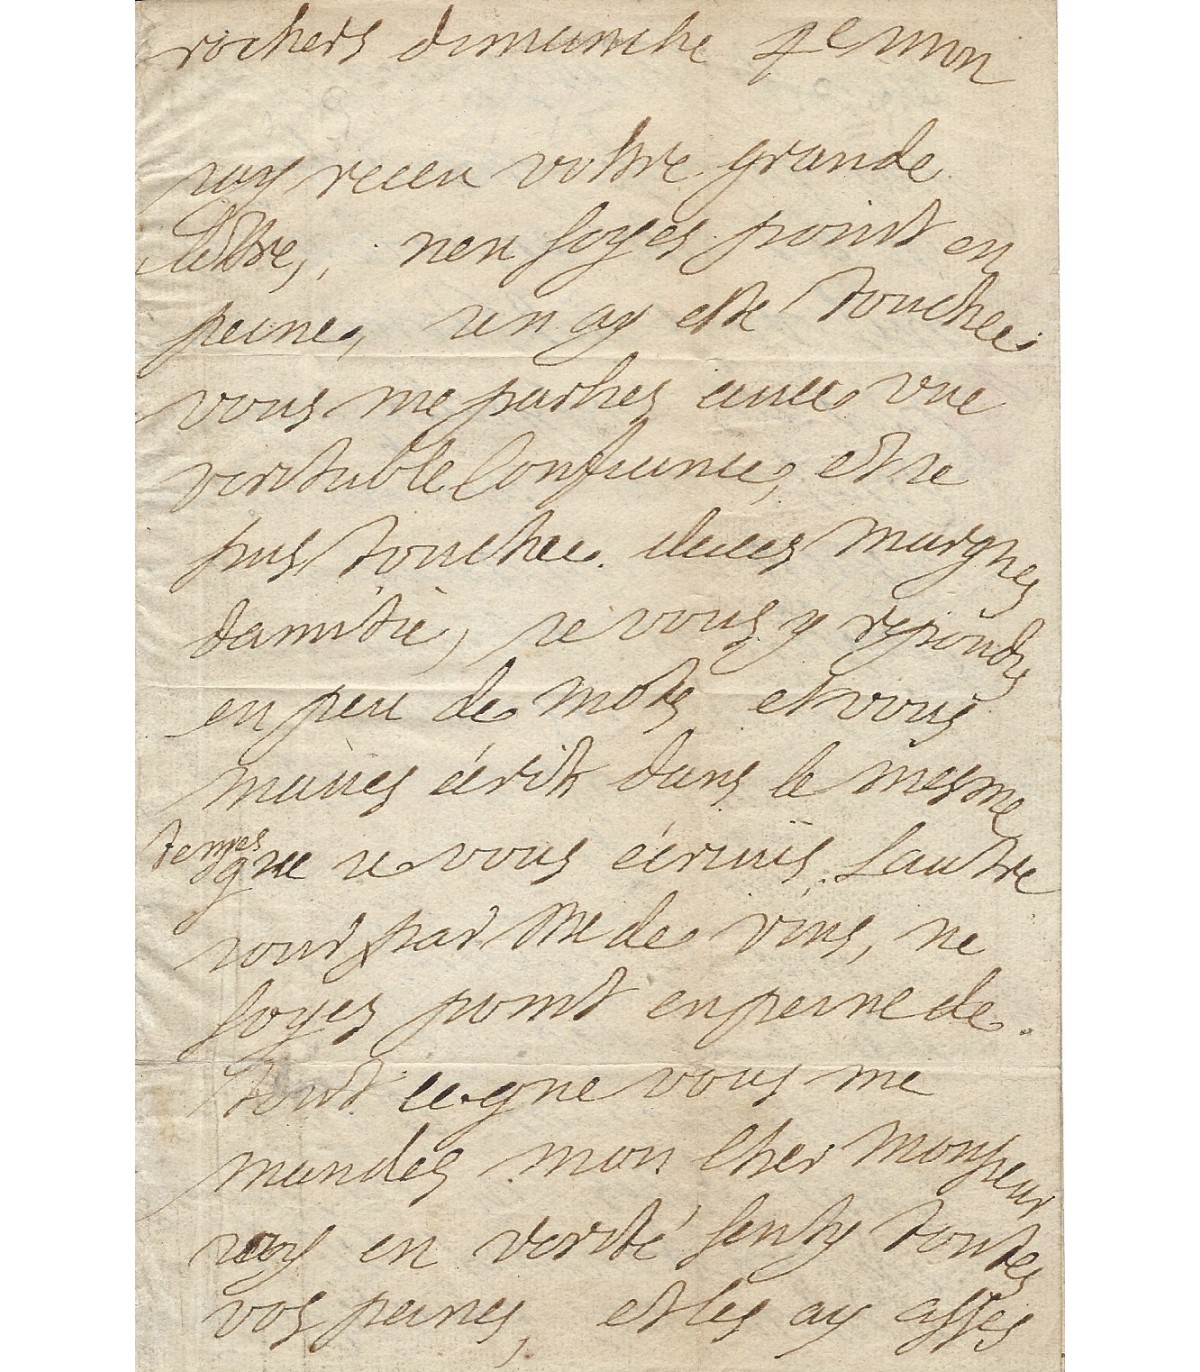 rochers dimanche
iay receu vostre grande
lettre, nen soyes point en
peine, ien ay esté touchee
vous me parles auec vne
veritable confiance, et ie
suis touchee de ces marques
damitié, ie vous y repondis
en peu de mots et vous
maues écrit dans le mesme
temps
que ie vous écriuis lautre
iour par Me de vins, ne
soyes point en peine de
tout ce que vous me
mandes mon cher Monsieur
iay en verité senty toutes
vos peines, et les ay asses